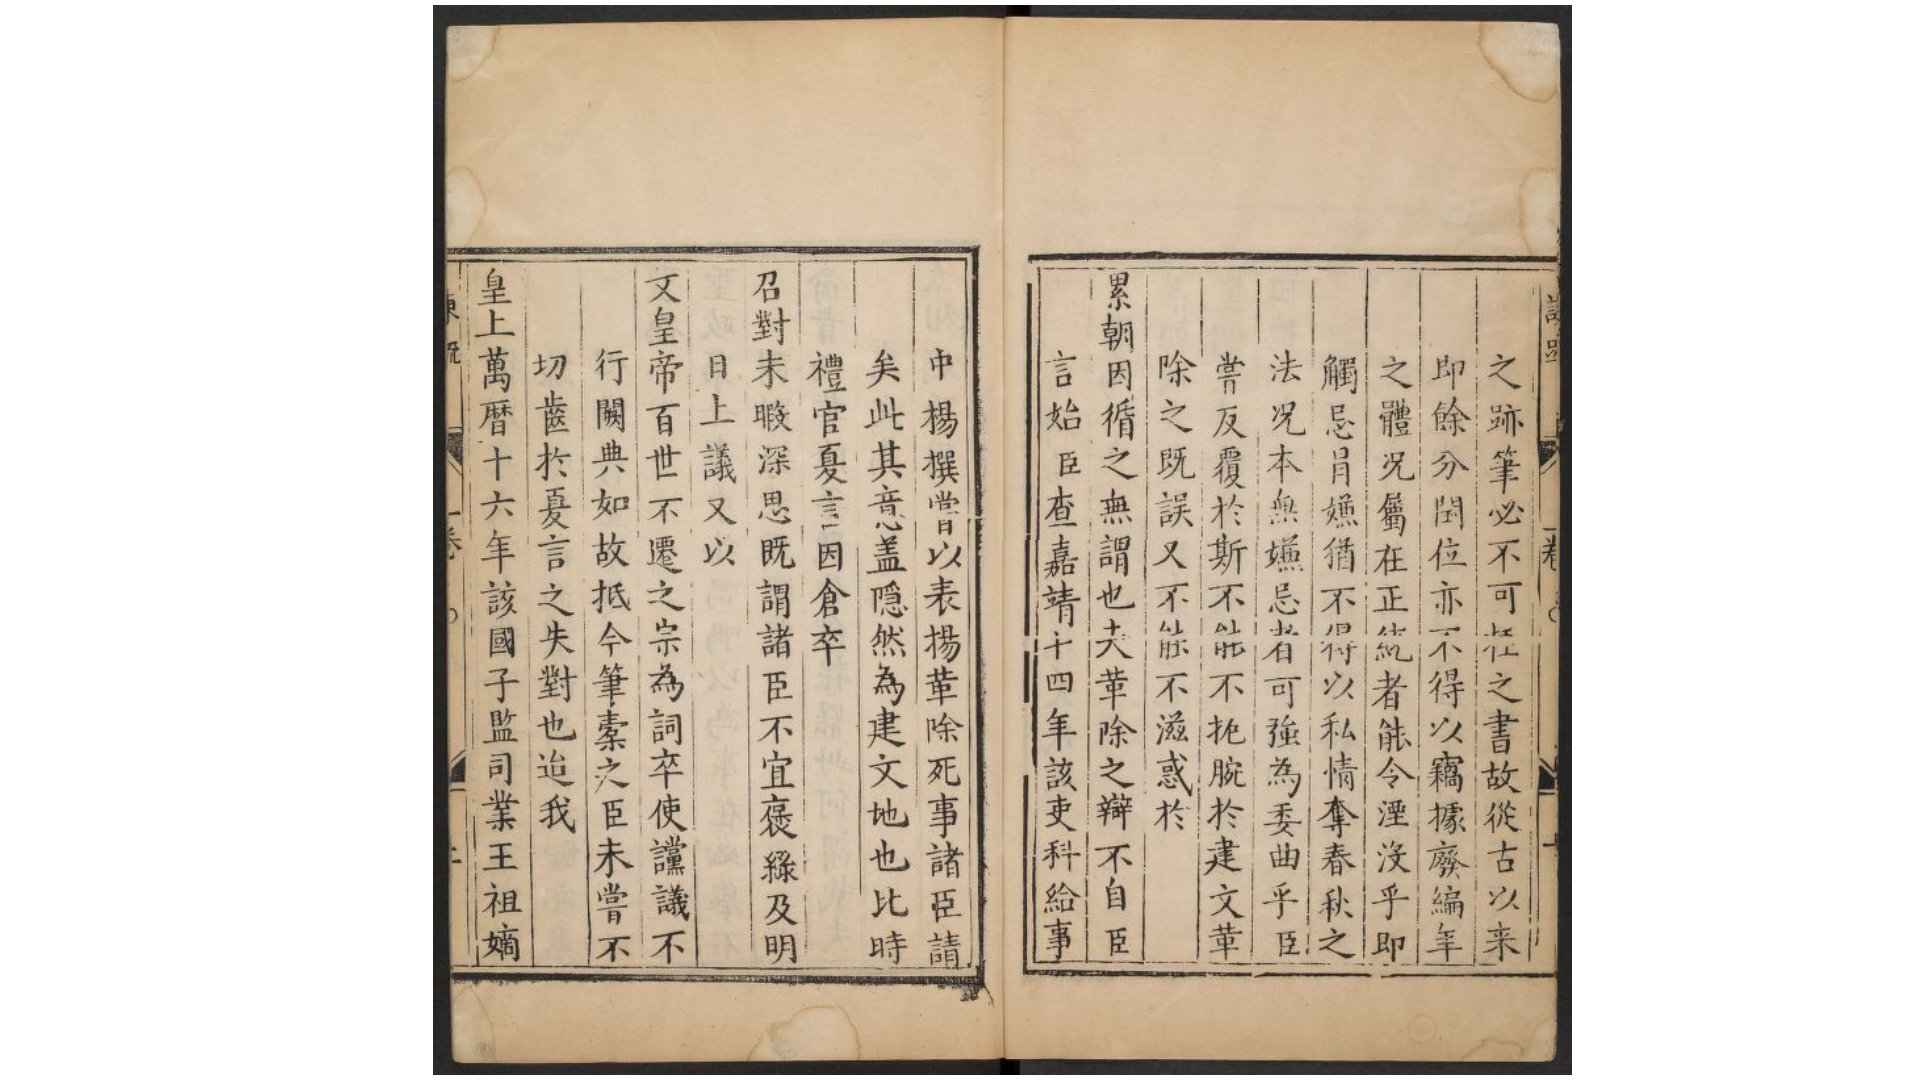 之跡筆必不可枉之書故從古以来
即餘分閏位亦不得以竊據廢編年
之體况屬在正統者能令湮没乎即
觸忌肙嫌猶不得以私情奪春秋之
法况本無嫌忌者可強為委曲乎臣
嘗反覆於斯不能不扼腕於建文革
除之既誤又不能不滋惑於
累朝因循之無謂也夫革除之辯不自臣
言始臣查嘉靖十四年該吏科給事
中楊撰嘗以表揚革除死事諸臣請
矣此其意盖隠然為建文地也比時
禮官夏言因倉卒
召對未暇深思既謂諸臣不宜褒錄及明
日上議又以
文皇帝百世不遷之宗為詞卒使讜議不
行闕典如故抵今筆橐之臣未嘗不
切齒於夏言之失對也迨我
皇上萬暦十六年該國子監司業王祖嫡